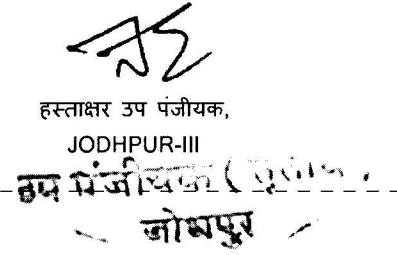 हस्ताक्षर उप पंजीयक,
JODHPUR-III
उप पंजीयक (
जोधपुर